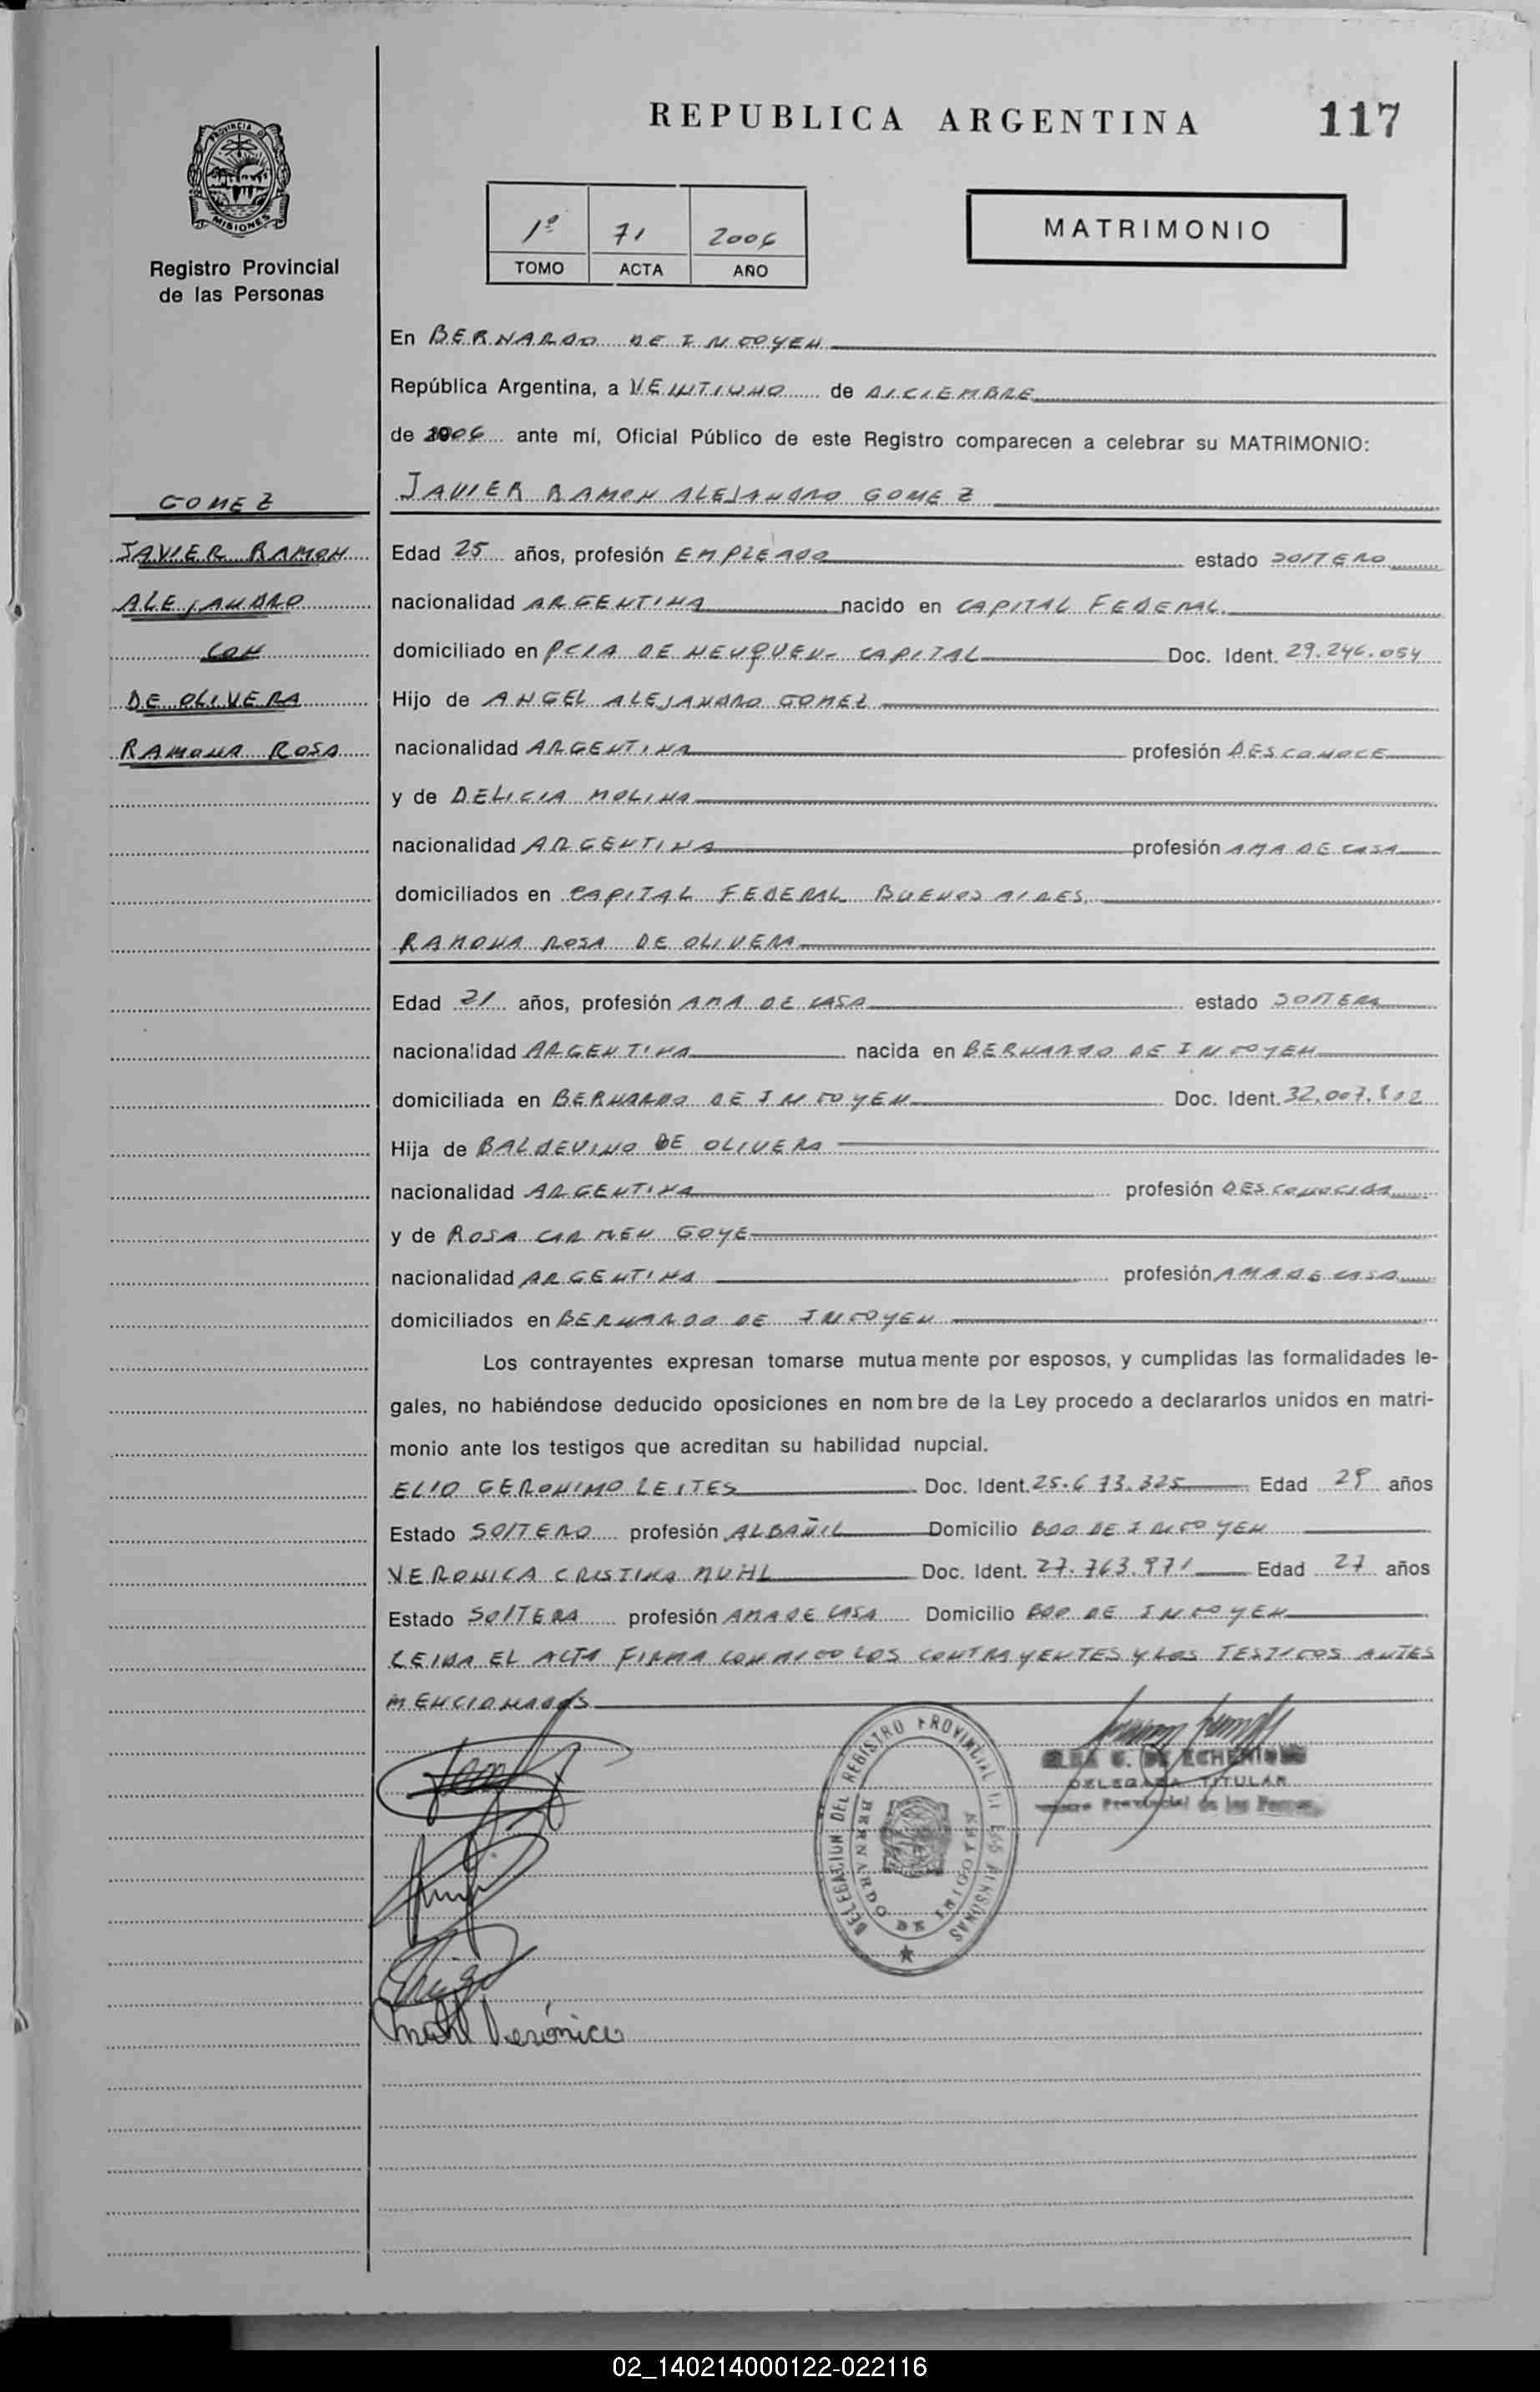 REPUBLICA ARGENTINA
117
PROVINCIA D
MISIONES
Registro Provincial
de las Personas
1º 71 2006
TOMO ACTA AÑO
MATRIMONIO
En BERNARDO DE IRIGOYEN
República Argentina, a VEINTIUNO de DICIEMBRE
de 2006 ante mí, Oficial Público de este Registro comparecen a celebrar su MATRIMONIO:
JAVIER RAMON ALEJANDRO GOMEZ
GOMEZ
JAVIER RAMON
ALEJANDRO
CON
DE OLIVERA
RAMONA ROSA
Edad 25 años, profesión EMPLEADO estado SOLTERO
nacionalidad ARGENTINA nacido en CAPITAL FEDERAL.
domiciliado en PCIA DE NEUQUEN- CAPITAL Doc. Ident. 29.246.054
Hijo de ANGEL ALEJANDRO GOMEZ
nacionalidad ARGENTINA profesión DESCONOCE
y de DELICIA MOLINA
nacionalidad ARGENTINA profesión AMA DE CASA
domiciliados en CAPITAL FEDERAL BUENOS AIRES.
RAMONA ROSA DE OLIVERA
Edad 21 años, profesión AMA DE CASA estado SOLTERA
nacionalidad ARGENTINA nacida en BERNARDO DE IRIGOYEN
domiciliada en BERNARDO DE IRIGOYEN Doc. Ident. 32.007.802
Hija de BALDEVINO DE OLIVERA
nacionalidad ARGENTINA profesión DESCONOCIDA
y de ROSA CARMEN GOYE
nacionalidad ARGENTINA profesión AMA DE CASA
domiciliados en BERNARDO DE IRIGOYEN
Los contrayentes expresan tomarse mutuamente por esposos, y cumplidas las formalidades le-
gales, no habiéndose deducido oposiciones en nombre de la Ley procedo a declararlos unidos en matri-
monio ante los testigos que acreditan su habilidad nupcial.
ELIO GERONIMO LEITES Doc. Ident. 25.673.325 Edad 29 años
Estado SOLTERO profesión ALBAÑIL Domicilio BDO DE IRIGOYEN
VERONICA CRISTINA MUHL Doc. Ident. 27.763.971 Edad 27 años
Estado SOLTERA profesión AMA DE CASA Domicilio BDO DE IRIGOYEN
LEIDA EL ACTA FIRMA CONMIGO LOS CONTRAYENTES Y LOS TESTIGOS ANTES
MENCIONADOS
DELEGACION DEL REGISTRO PROVINCIAL DE LAS PERSONAS
BERNARDO DE IRIGOYEN
DE ECHEVERRIA
DELEGADA TITULAR
Provincial de las
Muhl Verónica
02_140214000122-022116